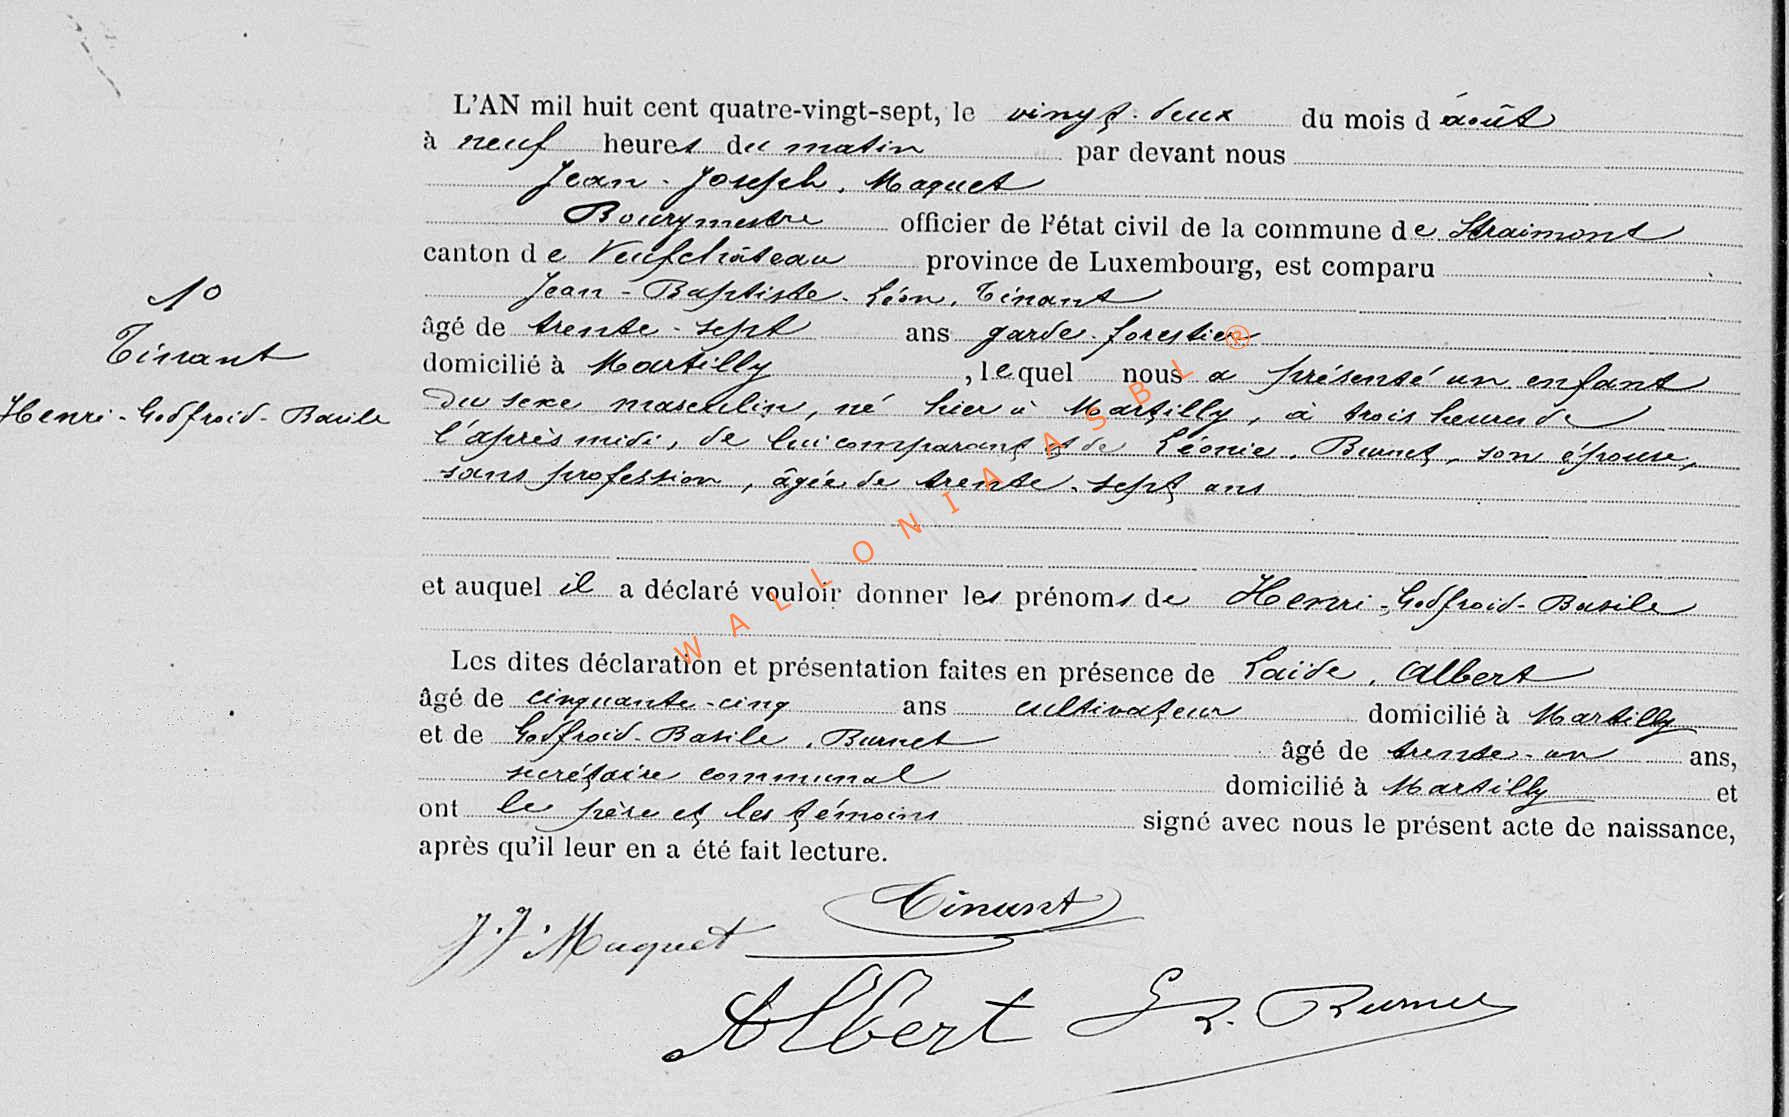 L'AN mil huit cent quatre-vingt-sept, le vingt-deux du mois d'août
à neuf heures du matin par devant nous
Jean-Joseph Maquet
Bourgmestre officier de l'état civil de la commune de Straimont
canton de Neufchâteau province de Luxembourg, est comparu
Jean-Baptiste-Léon Tinant
âgé de trente-sept ans garde-forestier
domicilié à Martilly, lequel nous a présenté un enfant
du sexe masculin, né hier à Martilly, à trois heures de
l'après midi, de lui comparant et de Léonie Burnet, son épouse,
sans profession, âgée de trente-sept ans
et auquel il a déclaré vouloir donner les prénoms de Henri-Godfroid-Basile
Les dites déclaration et présentation faites en présence de Laide Albert
âgé de cinquante-cinq ans cultivateur domicilié à Martilly
et de Godfroid-Basile Burnet âgé de trente-un ans,
secrétaire communal domicilié à Martilly et
ont le père et les témoins signé avec nous le présent acte de naissance,
après qu'il leur en a été fait lecture.
No
Tinant
Henri-Godfroid-Basile
Tinant
J. J. Maquet
Albert
Burnet
WALLONIA ASBL ®